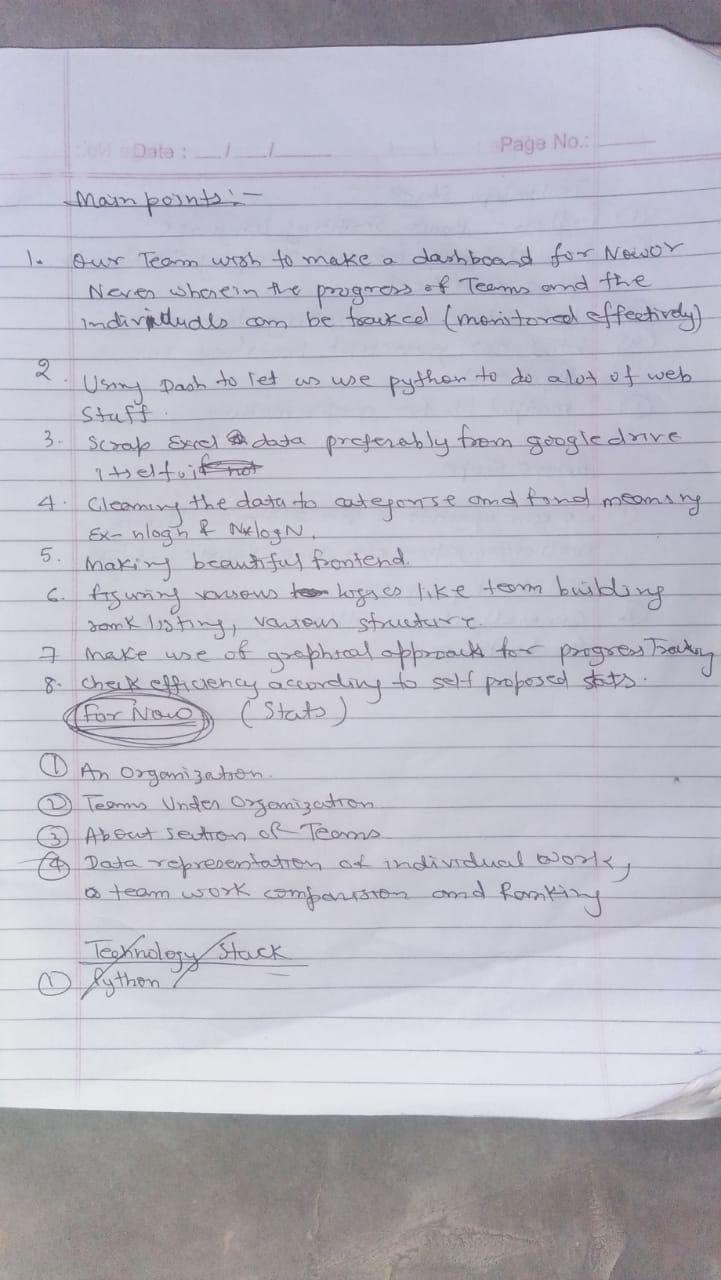 Date : __/__/____
Page No.: ____
Main points :-
1. Our Team wish to make a dashboard for Nowor
Never wherein the progress of Teams and the
individuals can be tracked (monitored effectively)
2. Using Dash to let us use python to do alot of web
stuff.
3. Scrap Excel data preferably from google drive
itself, if not
4. Cleaning the data to categorise and find meaning
Ex- nlogn & N*logN.
5. Making beautiful frontend.
6. figuring various logics like team building
rank listing, various structure.
7 Make use of graphical approach for progress Tracking
8. Check efficiency according to self proposed stats.
For Now (Stats)
① An Organization.
② Teams Under Organization
③ About section of Teams
④ Data representation of individual work,
team work comparision and Ranking
Technology Stack
① Python